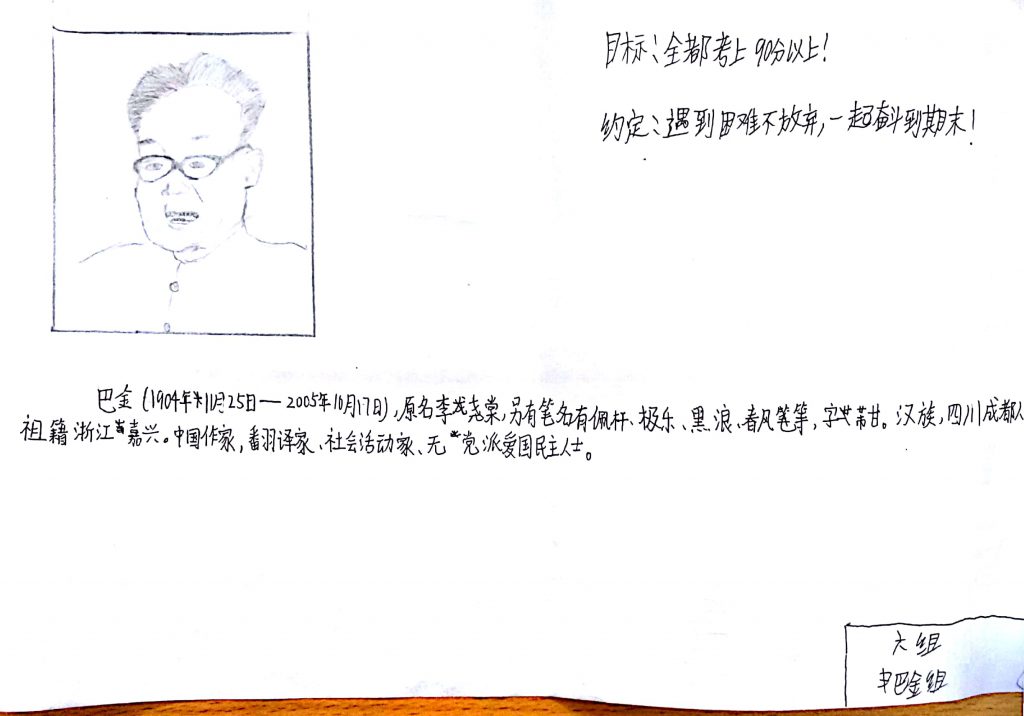 目标：全都考上90分以上！
约定：遇到困难不放弃，一起奋斗到期末！
巴金（1904年11月25日—2005年10月17日），原名李尧棠，另有笔名有佩杆、极乐、黑浪、春风笔等，字芾甘。汉族，四川成都人
祖籍浙江嘉兴。中国作家，翻译家、社会活动家、无党派爱国民主人士。
六组
巴金组